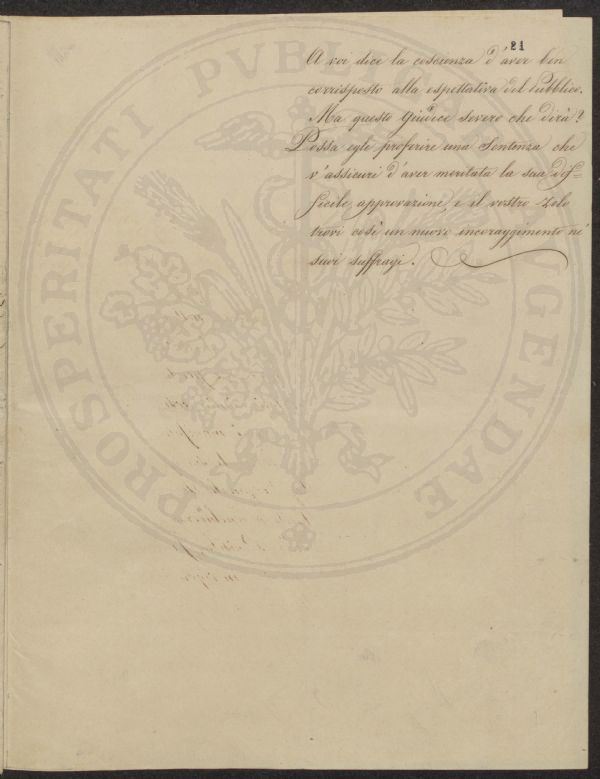 21
A voi dice la coscienza d'aver ben
corrisposto alla espettativa del Pubblico.
Ma questo Giudice severo che dirà?
Possa egli proferire una Sentenza che
v'assicuri d'aver meritata la sua dif=
ficile approvazione, e il vostro zelo
trovi così un nuovo incoraggimento né
suoi suffragi.
PROSPERITATI PVBLICAE AVGENDAE